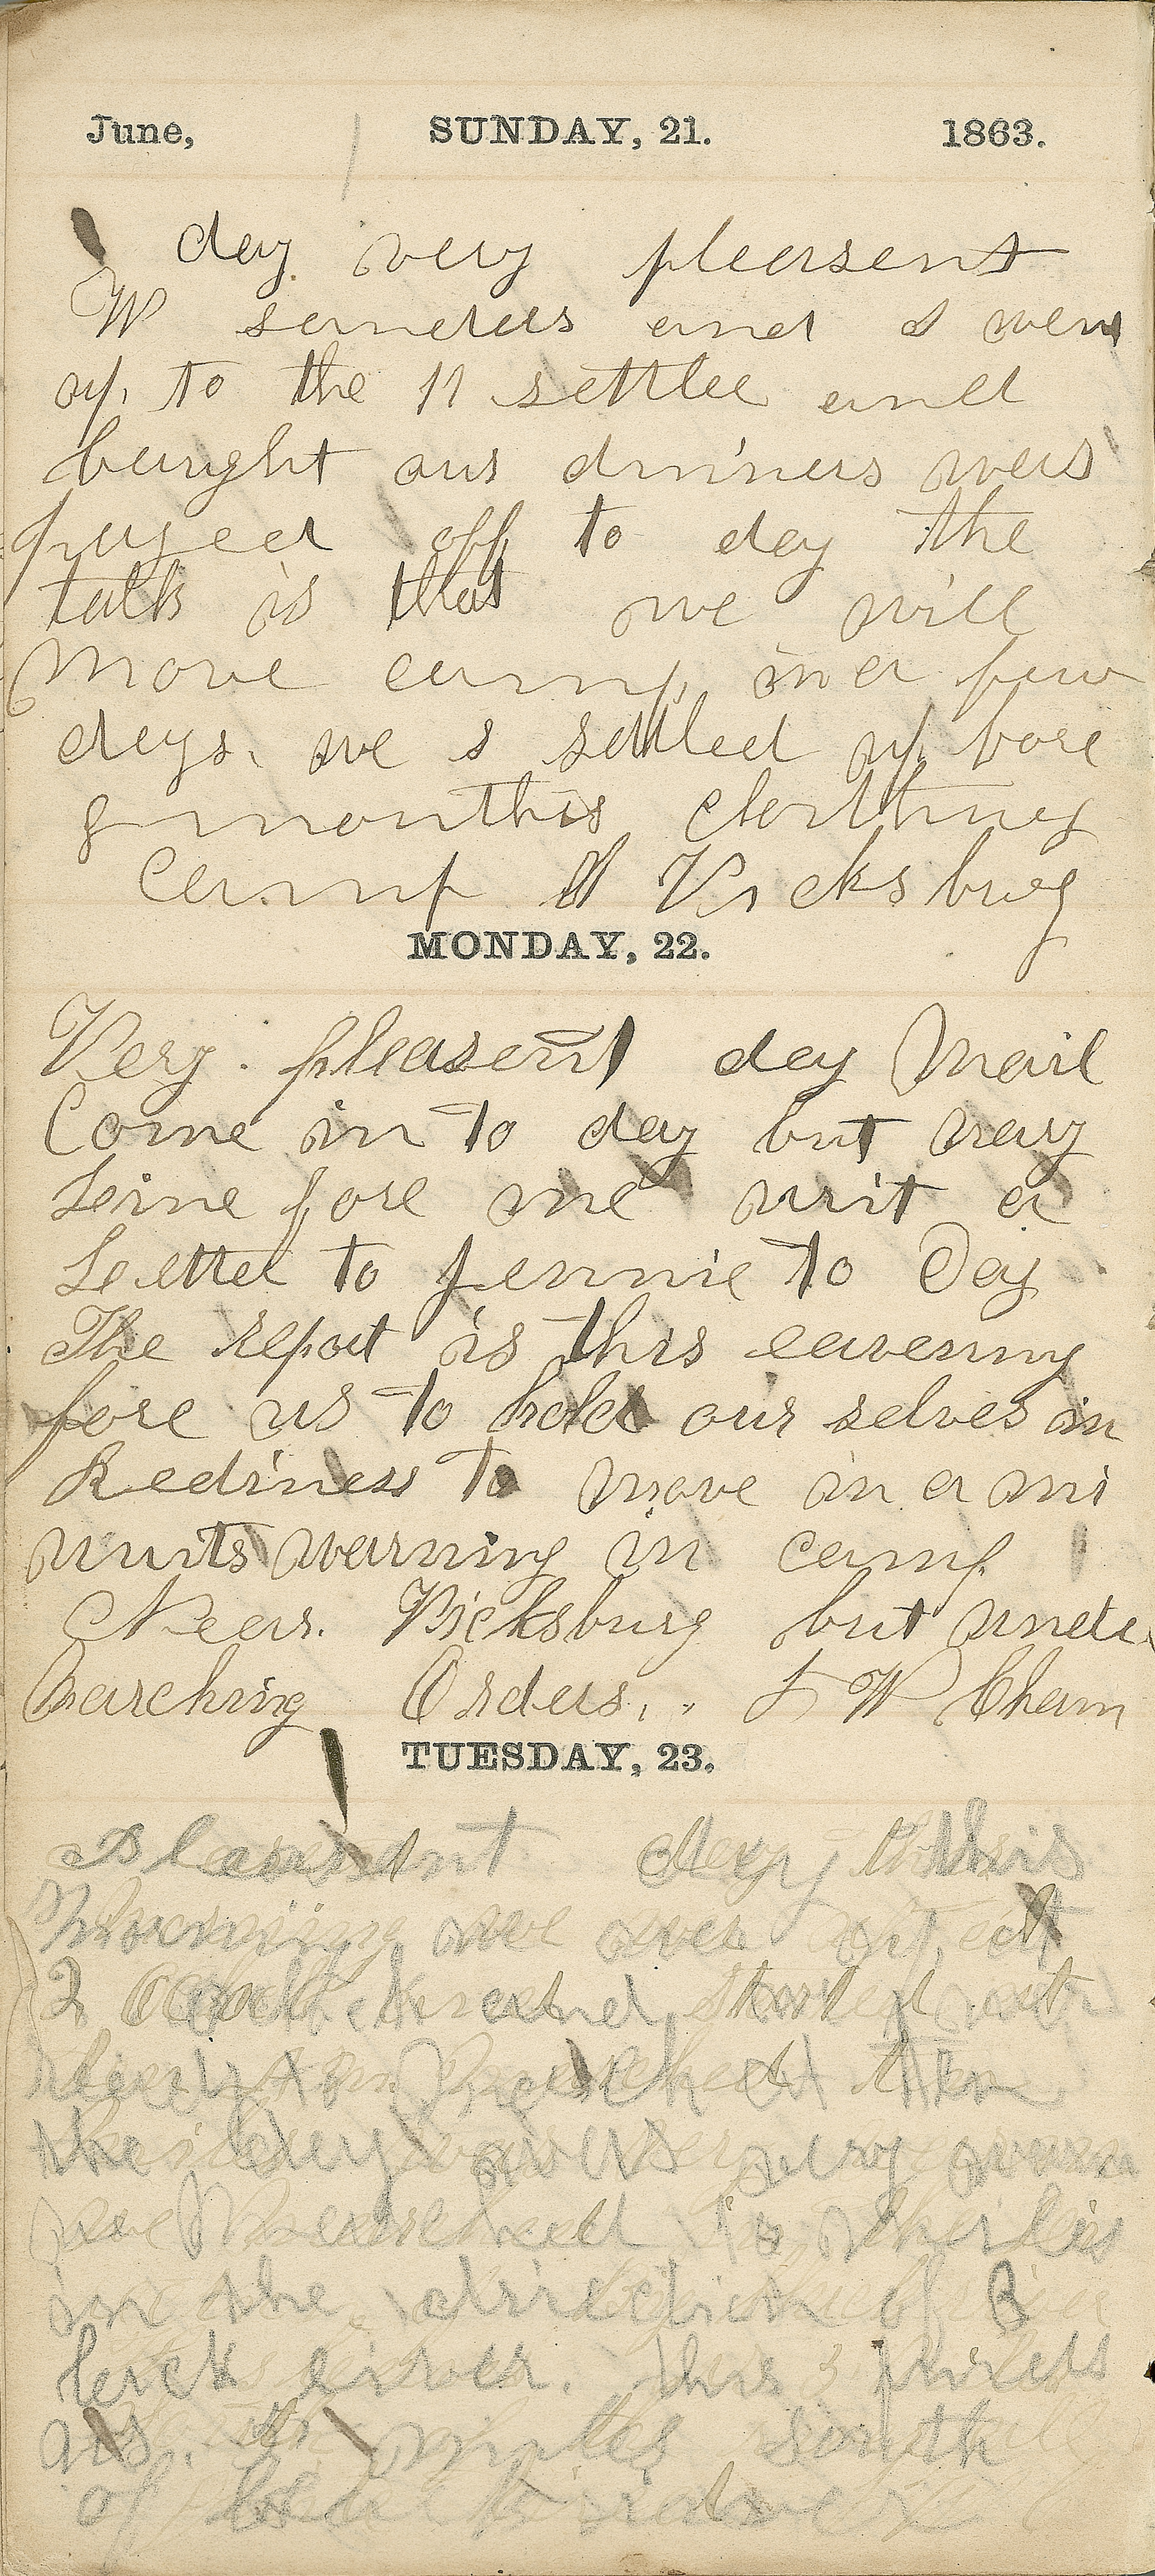 June, SUNDAY, 21. 1863.
day very pleasent
W sanders and I went
up to the 11 settled and
baught our dinners was
off to day the
talk is that we will
Move camp in a few
days. we s settled up fore
months Clorthing
Camp at Vicksburg
MONDAY, 22.
Very pleasent day Mail
Come in to day but nary
Line fore me writ a
Leetter to Jennie to Day
The report is this eavening
fore us to hold our selves in
Rediness to move in a mi
nuits warning in camp
Near. Vicksburg but under
Marching Orders. L W Cham
TUESDAY, 23.
Plasant day this
Morning we ware up at
2 Oclock and and started at
Marched ten
the day was very warm
we Marched
in the direction of B
lack river. this
miles south
of